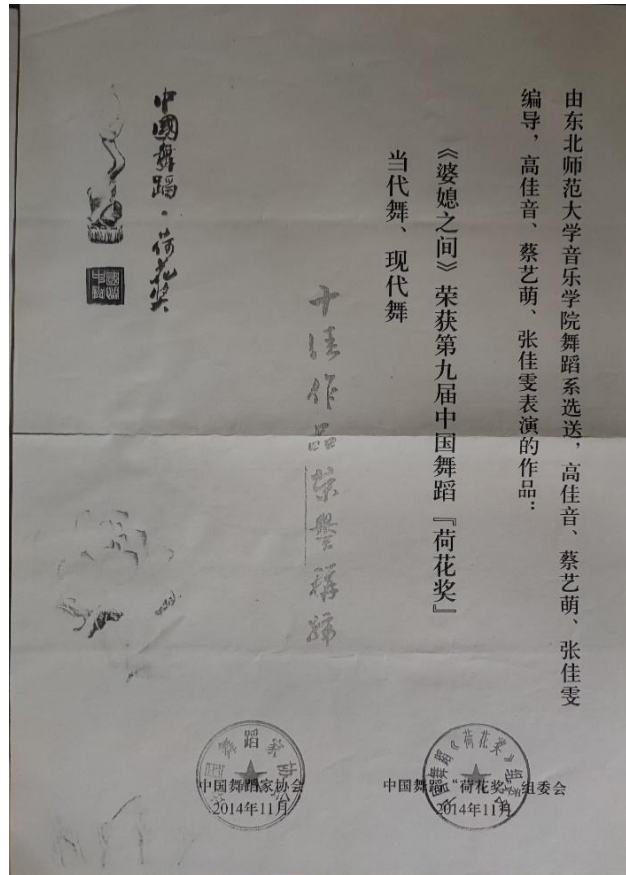 由东北师范大学音乐学院舞蹈系选送，高佳音、蔡艺萌、张佳雯
编导，高佳音、蔡艺萌、张佳雯表演的作品：
《婆媳之间》荣获第九届中国舞蹈『荷花奖』
当代舞、现代舞
十佳作品荣誉稱號
中國舞蹈·荷花奖
中国舞蹈“荷花奖”组委会
2014年11月
中国舞蹈家协会
2014年11月